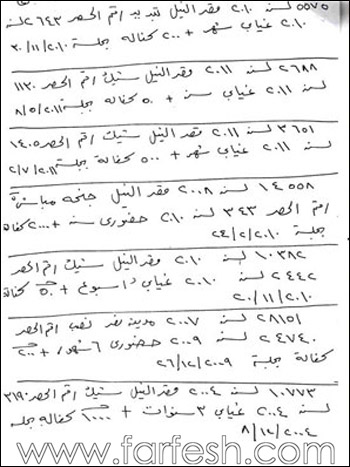 ٥٥٧٥ لسنة ٢٠١٠ قصر النيل تبديد رقم الحصر ٢٦٤٣ لسنة
٢٠١٠ غيابي شهر + ٢٠٠ كفالة جلسة ٣٠/١١/٢٠١٠
٢٦٨٨ لسنة ٢٠١١ قصر النيل شيك رقم الحصر ١١٣٠
لسنة ٢٠١١ غيابي سنة + ٥٠ كفالة جلسة ٨/٥/٢٠١١
٣٦٥١ لسنة ٢٠١١ قصر النيل شيك رقم الحصر ١٤٠٥
لسنة ٢٠١١ غيابي شهر + ٥٠٠ كفالة جلسة ٢/٧/٢٠١١
١٤٥٥٨ لسنة ٢٠٠٨ قصر النيل جنحه مباشرة
رقم الحصر ٣٤٣ لسنة ٢٠١٠ حضوري سنة + ٢٠٠٠ كفالة
جلسة ٢٤/٢/٢٠١٠
١٠٣٨٢ لسنة ٢٠١٠ قصر النيل شيك رقم الحصر
٢٤٤٢ لسنة ٢٠١٠ غيابي اسبوع + ٥٠ كفالة
٢٠/١١/٢٠١٠
٢٨١٥١ لسنة ٢٠٠٧ مدينة نصر نصب رقم الحصر
٢٤٧٤٠ لسنة ٢٠٠٩ حضوري ٦ شهور + ٢٠٠
كفالة جلسة ٢٦/١٢/٢٠٠٩
١٠٧٧٣ لسنة ٢٠٠٤ قصر النيل شيك رقم الحصر ٣١٩٠
لسنة ٢٠٠٤ غيابي ٣ سنوات + ١٠٠٠ كفالة جلسة
٨/١٢/٢٠٠٤
www.farfesh.com